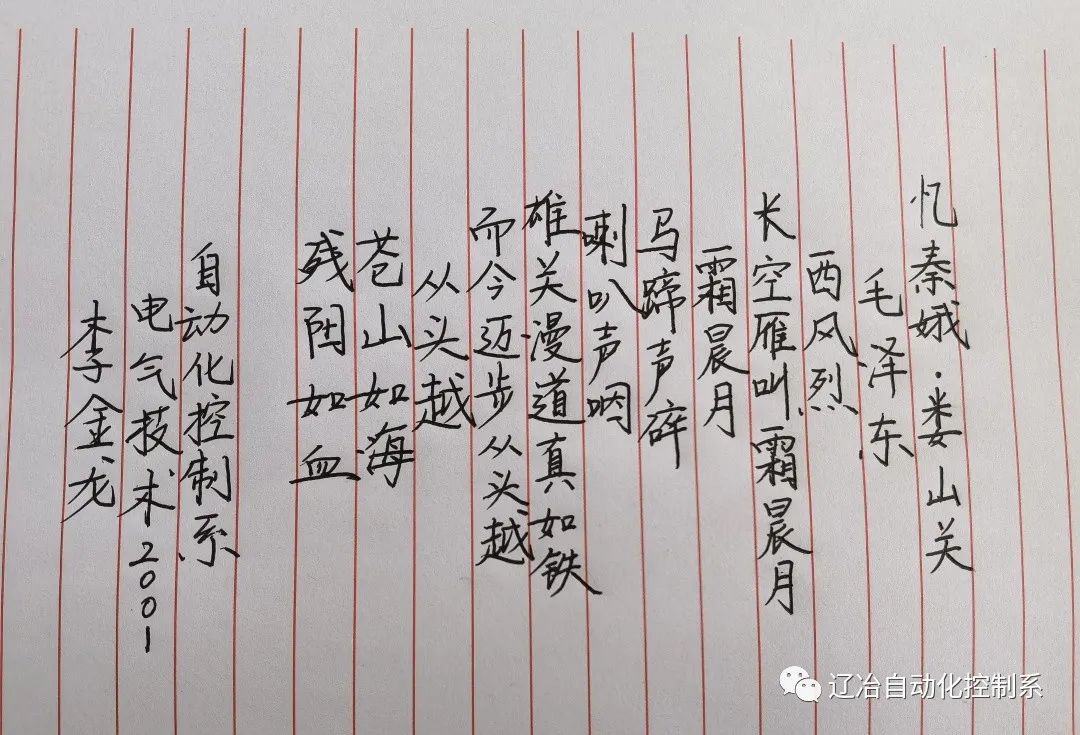 忆秦娥·娄山关
毛泽东
西风烈
长空雁叫霜晨月
霜晨月
马蹄声碎
喇叭声咽
雄关漫道真如铁
而今迈步从头越
从头越
苍山如海
残阳如血
自动化控制系
电气技术2001
李金龙
辽冶自动化控制系